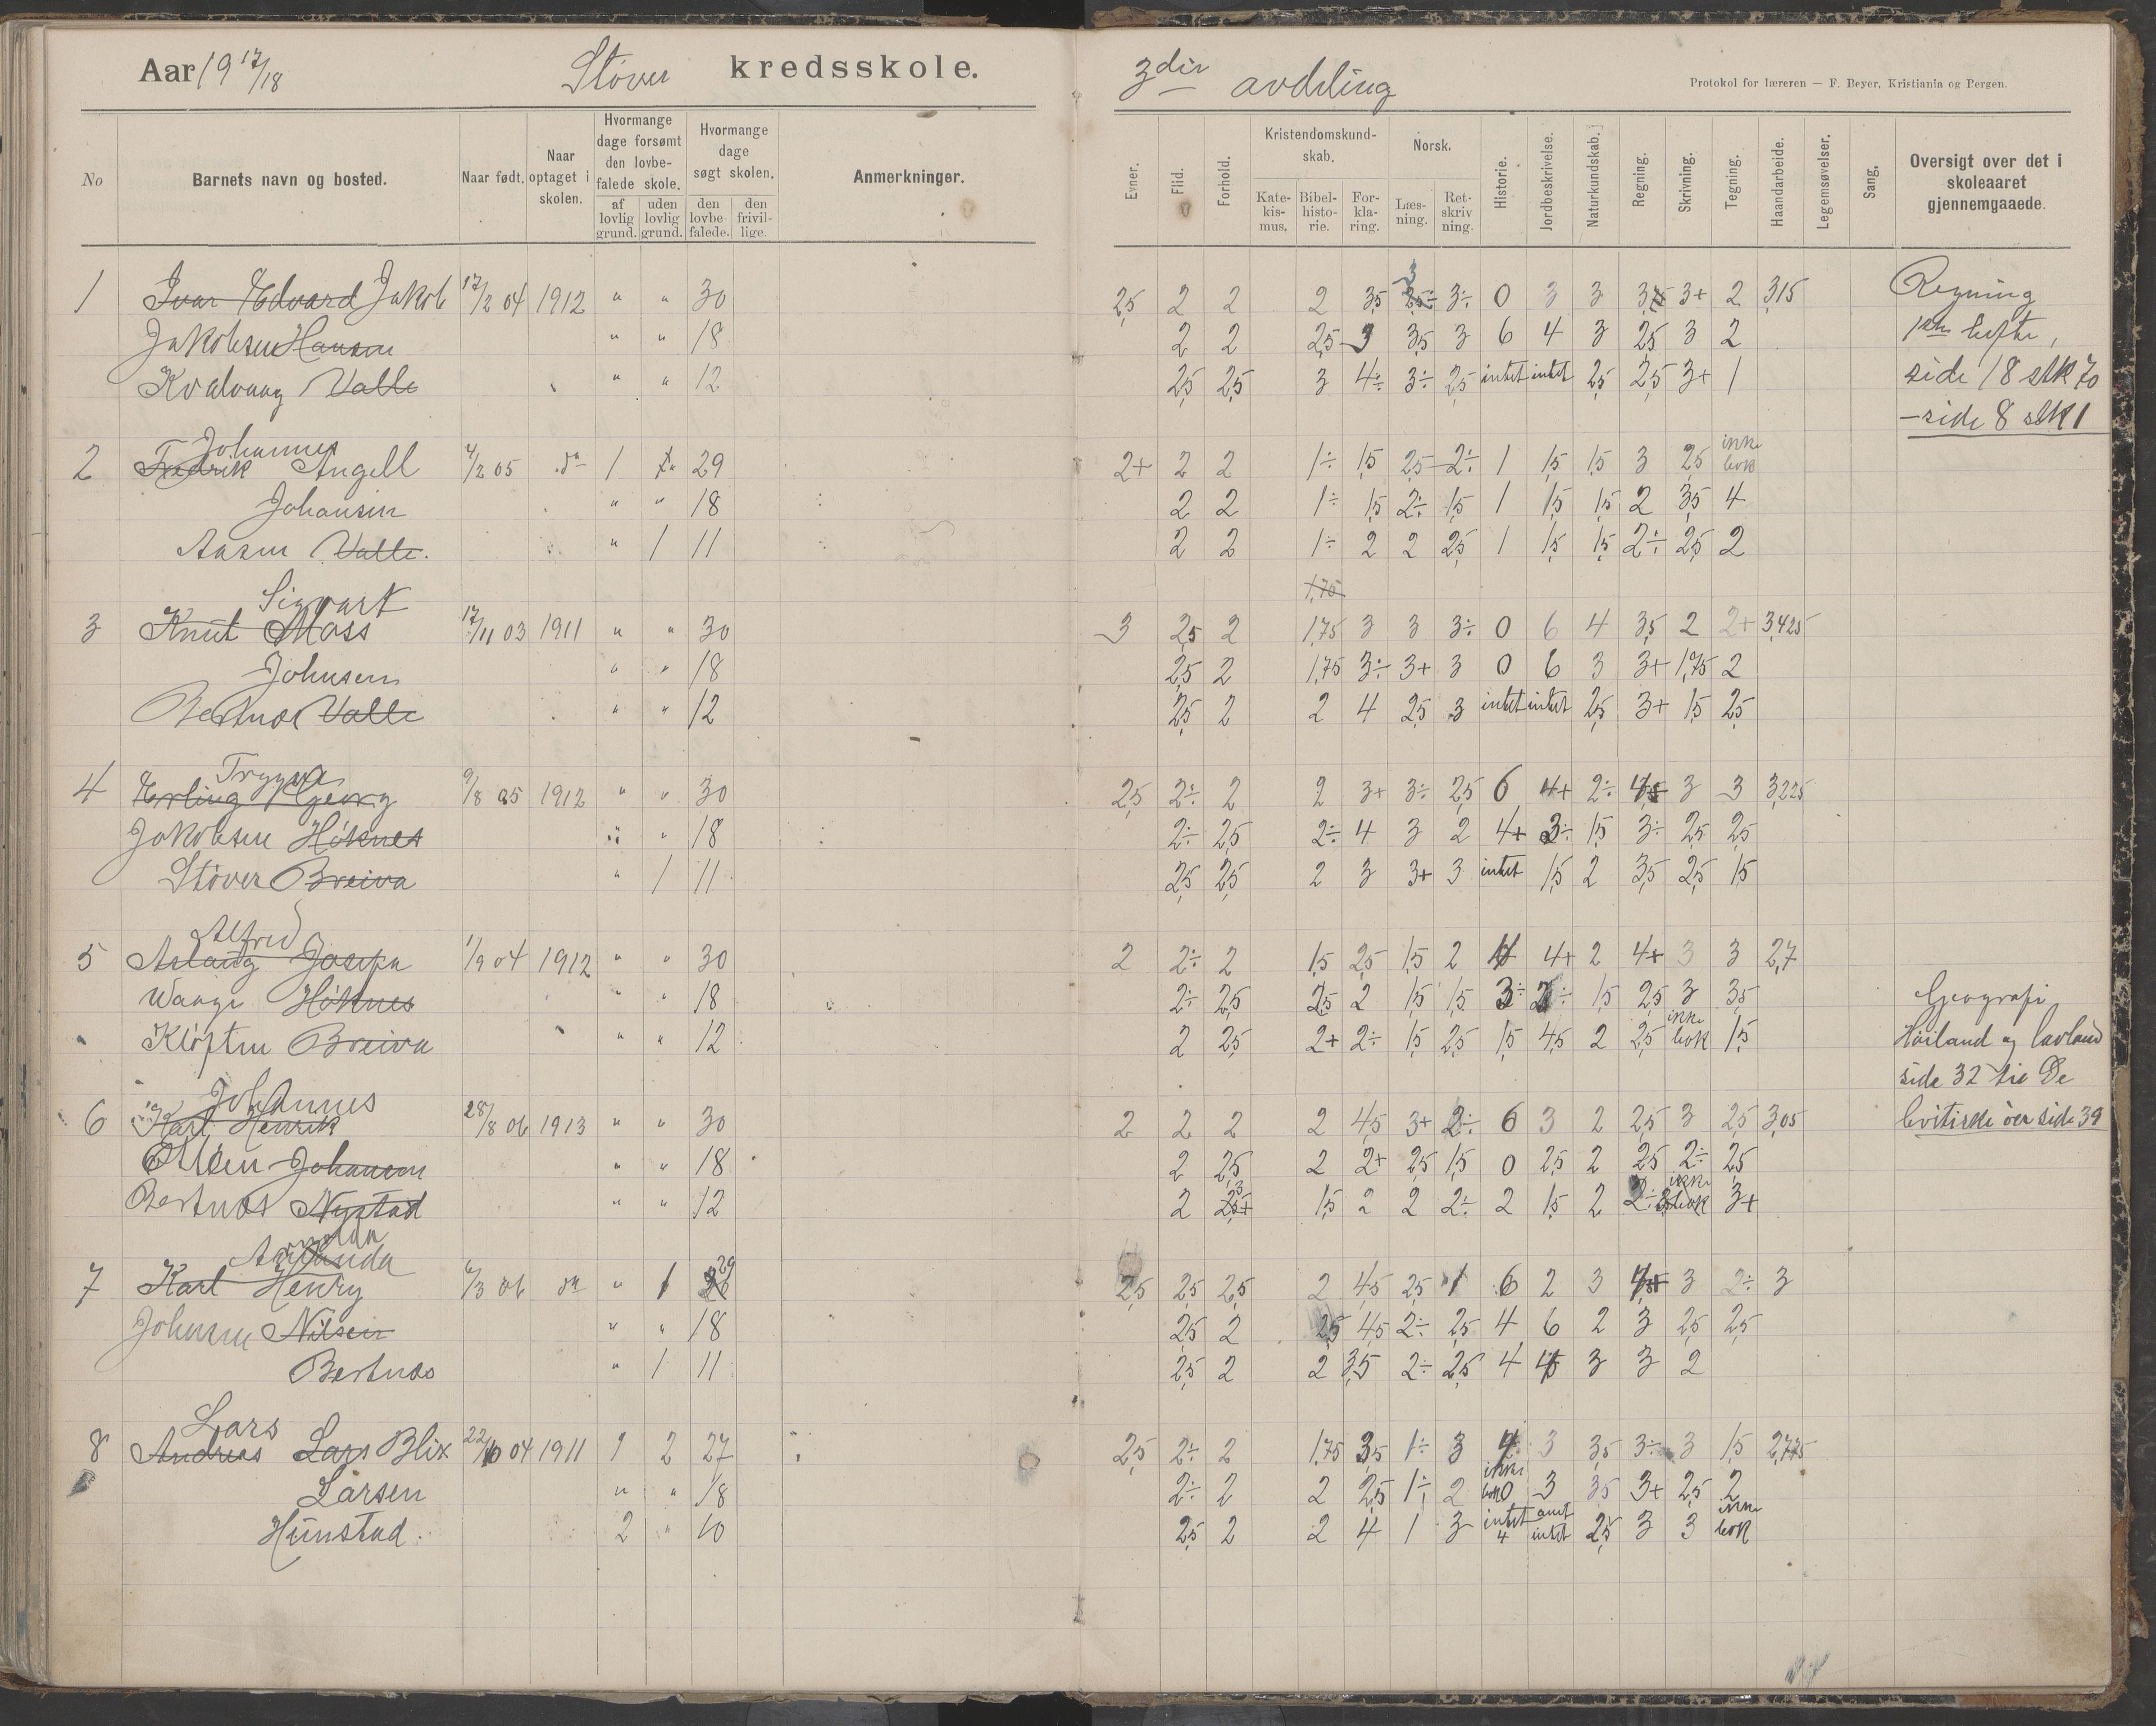 Aar 19 17/18 Støver kredsskole. 3die avdeling
Protokol for læreren — F. Beyer, Kristiania og Bergen.
No Barnets navn og bosted. Naar født. Naar optaget i skolen. Hvormange dage forsømt den lovbefalede skole. af lovlig grund. uden lovlig grund. Hvormange dage søgt skolen. den lovbefalede. den frivillige. Anmerkninger.
Evner. Flid. Forhold. Kristendomskundskab. Katekismus. Bibelhistorie. Forklaring. Norsk. Læsning. Retskrivning. Historie. Jordbeskrivelse. Naturkundskab. Regning. Skrivning. Tegning. Haandarbeide. Legemsøvelser. Sang. Oversigt over det i skoleaaret gjennemgaaede.
1 Ivar Edvard Jakob 17/2 04 1912 " " 30 2,5 2 2 2 3,5 3 3÷ 0 3 3 3 3+ 2 3,15 Regning
Jakobsen Hansen " " 18 2 2 2,5 3 3,5 3 6 4 3 2,5 3 2 1ste hefte,
Kvalvaag Valle " " 12 2,5 2,5 3 4÷ 3÷ 2,5 intet intet 2,5 2,5 3+ 1 side 18 stk 70
– side 8 stk 1
Johannes
2 Fredrik Angell 4/2 05 do 1 29 2+ 2 2 1÷ 1,5 2,5 2÷ 1 1,5 1,5 3 2,5 ikke bok
Johansen " " 18 2 2 1÷ 1,5 2÷ 1,5 1 1,5 1,5 2 3,5 4
Aasen Valle. " 1 11 2 2 1÷ 2 2 2,5 1 1,5 1,5 2÷ 2,5 2
Sigvart 1,75
3 Knut Moss 17/11 03 1911 " " 30 3 2,5 2 1,75 3 3 3÷ 0 6 4 3,5 2 2+ 3,425
Johnsen " " 18 2,5 2 1,75 3÷ 3+ 3 0 6 3 3+ 1,75 2
Bertnæs Valle " " 12 2,5 2 2 4 2,5 3 intet intet 2,5 3+ 1,5 2,5
Trygve
4 Erling Georg 9/8 05 1912 " " 30 2,5 2÷ 2 2 3+ 3÷ 2,5 6 4+ 2÷ 4 3 3 3,225
Jakobsen Høknes " " 18 2÷ 2,5 2÷ 4 3 2 4+ 3÷ 1,5 3÷ 2,5 2,5
Støver Breiva " 1 11 2,5 2,5 2 3 3+ 3 intet 1,5 2 3,5 2,5 1,5
Alfred
5 Aslaug Josefa 1/9 04 1912 " " 30 2 2÷ 2 1,5 2,5 1,5 2 4 4+ 2 4+ 3 3 2,7
Waage Høknes " " 18 2÷ 2,5 2,5 2 1,5 1,5 3÷ 2÷ 1,5 2,5 3 3,5 Geografi
Kløften Breiva " " 12 2 2,5 2+ 2÷ 1,5 2,5 1,5 4,5 2 2,5 ikke bok 1,5 Høiland og lavland
side 32 til De
Johannes
6 Karl Henrik 28/8 06 1913 " " 30 2 2 2 2 4,5 3+ 2÷ 6 3 2 2,5 3 2,5 3,05 britiske øer side 39
Olsen Johansen " " 18 2 2,5 2 2+ 2,5 1,5 0 2,5 2 2,5 2÷ 2,5
Bertnæs Nystad " " 12 2 3 1,5 2 2 2÷ 2 1,5 2 2÷ ikke bok 3+
7 Karl Henry 6/3 06 do " 1 29 2,5 2,5 2,5 2 4,5 2,5 1 6 2 3 4 3 2÷ 3
Johnsen Nilsen " " 18 2,5 2 2,5 4,5 2÷ 2,5 4 6 2 3 2,5 2,5
Bertnæs " 1 11 2,5 2 2 3,5 2÷ 2,5 4 4 3 3 2
Lars
8 Andreas Lars Blix 22/10 04 1911 1 2 27 2,5 2÷ 2 1,75 3,5 1÷ 3 4 3 3,5 3÷ 3 1,5 2,775
Larsen " " 18 2÷ 2 2 2,5 1÷ 2 ikke bok 0 3 3,5 3+ 2,5 2
Hunstad. 2 " 10 2,5 2 2 4 1 3 intet 4 intet 2,5 3 3 ikke bok